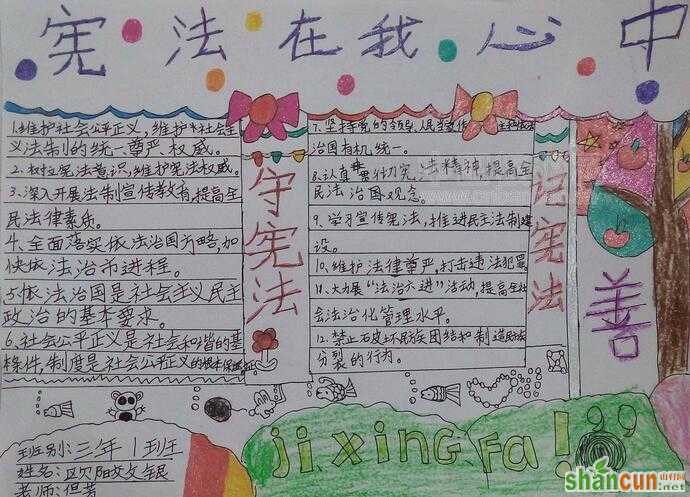 宪法在我心中
1.维护社会公平正义,维护社会主
义法制的统一尊严、权威。
2.树立宪法意识,维护宪法权威。
3.深入开展法制宣传教育,提高全
民法律素质。
4.全面落实依法治国方略,加
快依法治市进程。
5.依法治国是社会主义民主
政治的基本要求。
6.社会公平正义是社会和谐的基
本条件,制度是社会公平正义的根本保证
守宪法
7.坚持党的领导、人民当家作主
治国有机统一。
8.认真贯彻宪法精神,提高全
民法治国观念。
9.学习宣传宪法,推进民主法制建
设。
10.维护法律尊严,打击违法犯罪
11.大力展“法治六进”活动,提高全社
会法治化管理水平。
12.禁止破坏民族团结和制造民族
分裂的行为。
记宪法
善
班别:三年1班
姓名:欧阳文银
老师:
ji xing Fa!
shancun
.net